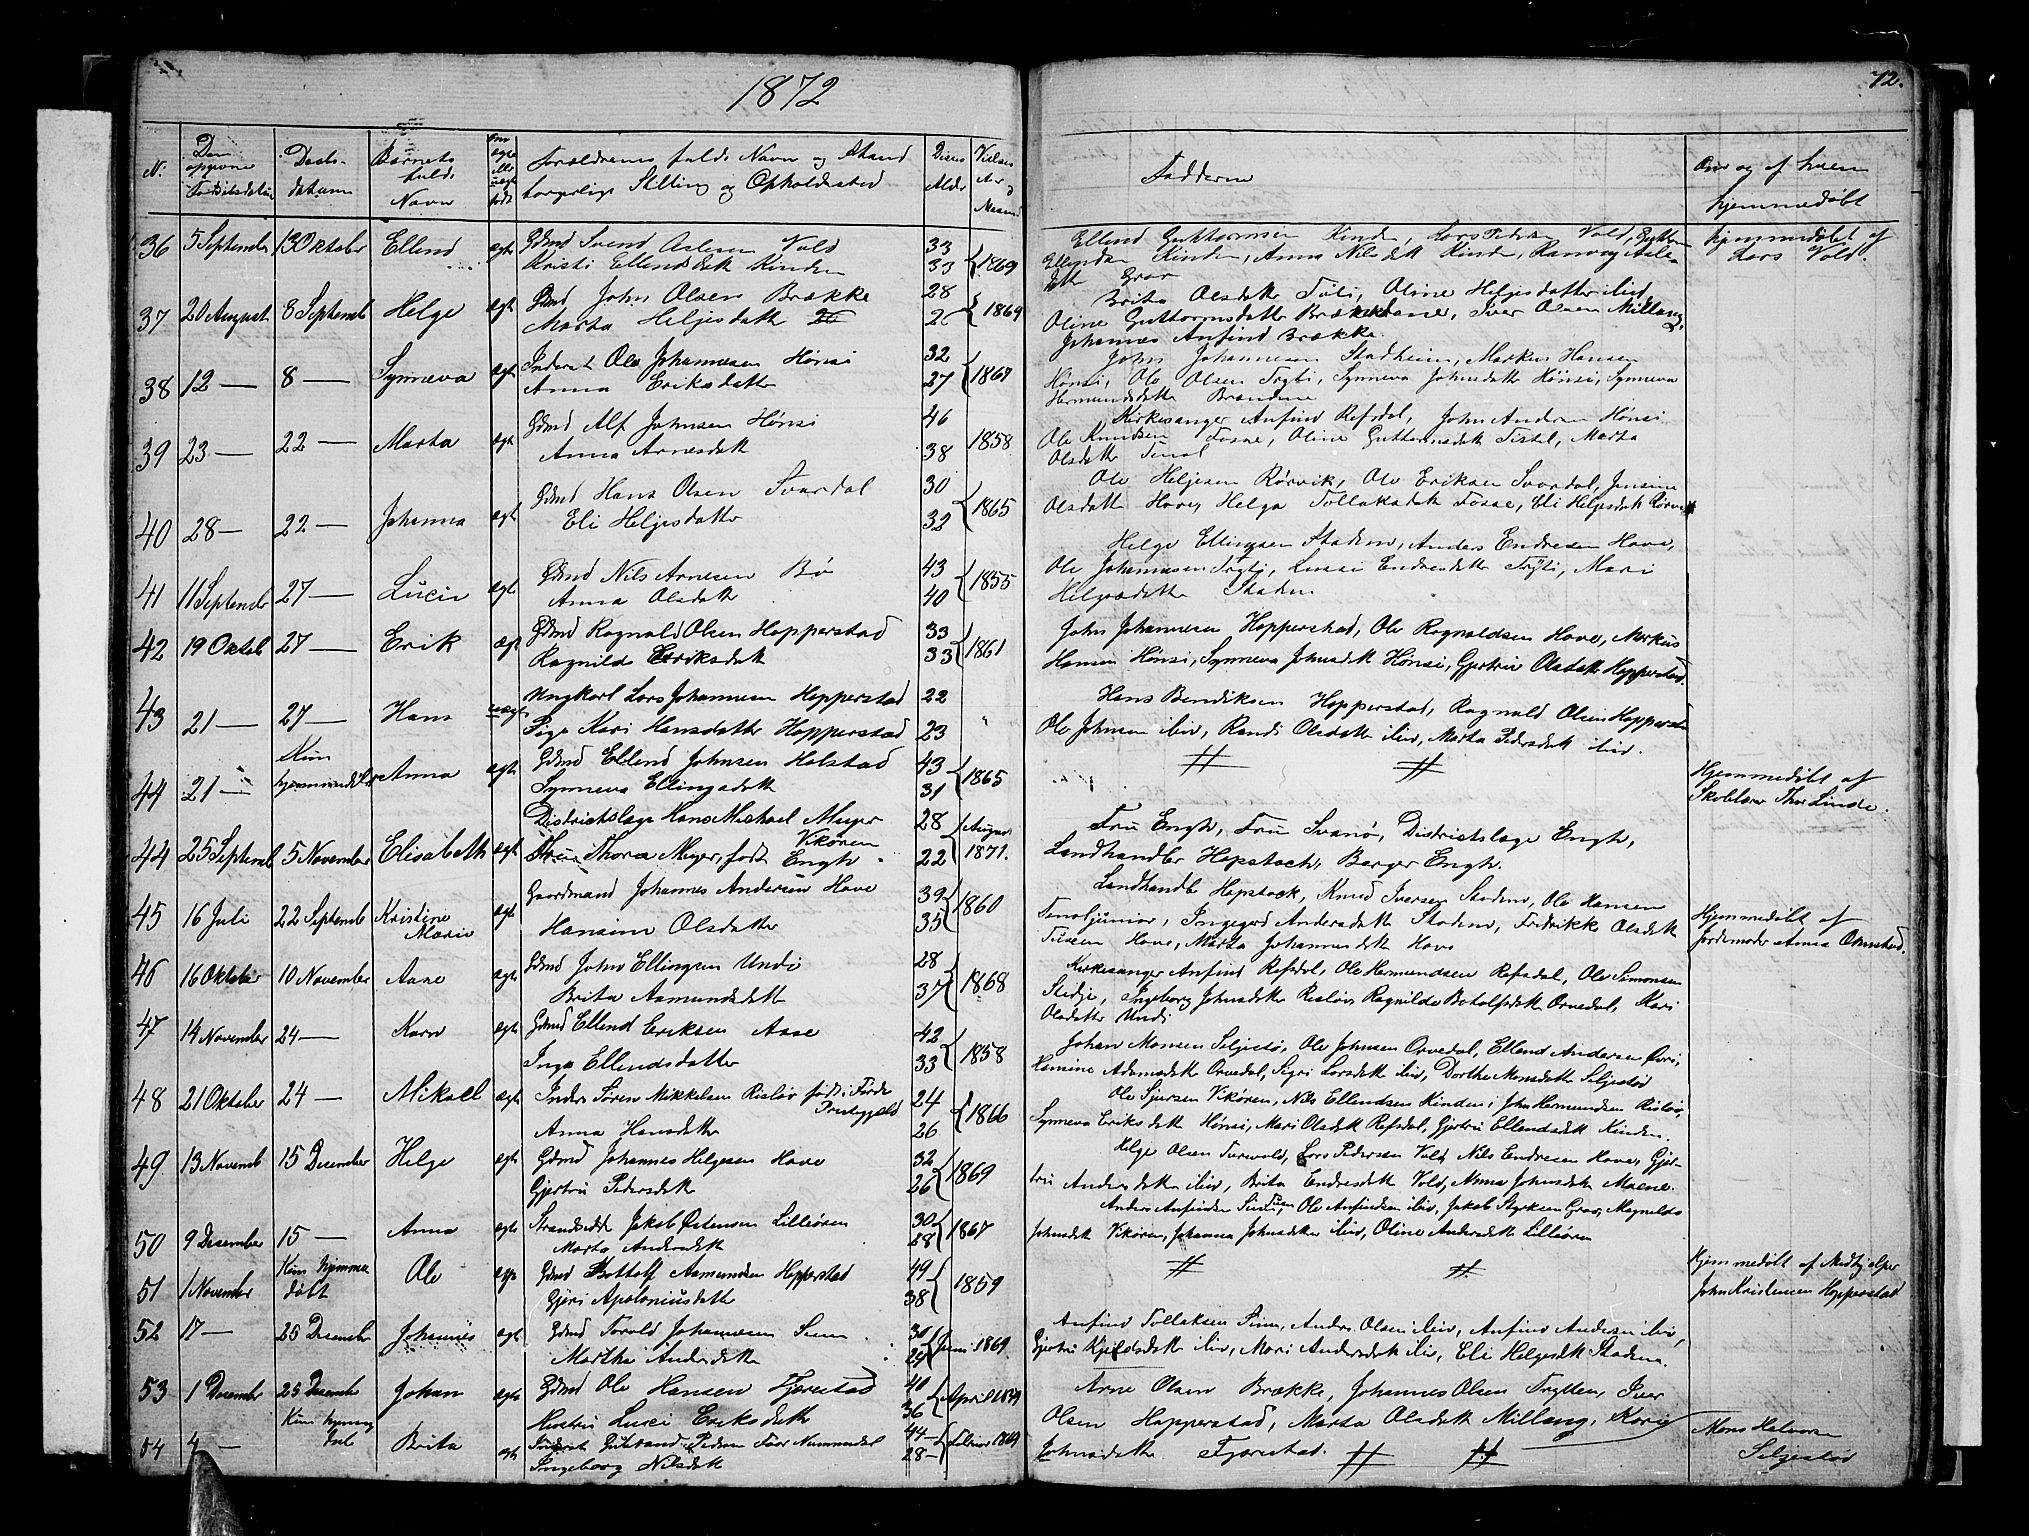 1872
72.
N.
Den opgivne Fødselsdatum
Daabsdatum
Barnets fulde Navn
Om ægte eller uægte født
Forældrenes fulde Navn og Stand
borgerlige Stilling og Opholdssted
Disses Alder
Vielses Aar og Maaned
Fadderne
Om og af hvem
hjemmedøbt
36 5 September 13 Oktober Ellend ægte Gdmd Svend Aslesen Vold 33
Kristi Ellendsdttr Kinden 33 1869
Ellend Guttormsen Kinden, Lars Pedersen Vold, Guttorm
Ellendsen Kinden, Anna Nilsdtt Kinden, Ranveig Asle-
dottr Grov
Hjemmedøbt af
Lars Vold.
37 20 August 8 Septemb Helge ægte Gdmd John Olsen Brække 28
Marta Helgesdatt 26 1869
Brita OlsdatterFøli, Oline Helgesdatter ibid,
Oline Guttormsdatter Brækkedane, Iver Olsen Millang,
Johannes Anfind Brække.
38 12 — 8 — Synneva ægte Inderst Ole Johannesen Hønsi 32
Anna Eriksdatter 27 1867
John Johannesen Stadheim, Markus Hansen
Hønsi, Ole Olsen Trytti, Synneva Johnsdatter Hønsi, Synneva
Hermundsdatter Brandene
39 23 — 22 — Marta ægte Gdmd Alf Johnsen Hønsi 46
Anna Arnesdatt 38 1858
Kirkesanger Anfind Refsdal, John Andersen Hønsi
Ole Knudsen Fosse, Oline Guttormsdatt Tistel, Marta
Olsdatter Tenol
40 28 — 22 — Johanna ægte Gdmd Hans Olsen Svardal 30
Eli Helgesdatter 32 1865
Ole Helgesen Rørvik, Ole Eriksen Svardal, Jensine
Olsdatter Hove, Helga Tollaksdatt Fosse, Eli Helgesdatt Rørvik
41 11 September 27 — Lucie ægte Gdmd Nils Arnesen Bø 43
Anna Olsdatt 40 1855
Helge Ellingsen Staden, Anders Endresen Hove,
Ole Johannesen Trytti, Lussi Endresdatter Trytti, Mari
Helgesdatter Staden
42 19 Oktob 27 — Erik ægte Gdmd Ragnald Olsen Hopperstad 33
Ragnilde Eriksdatt 33 1861
John Johannesen Hopperstad, Ole Ragnaldsen Hove, Markus
Hansen Hønsi, Synneva Johnsdatt Hønsi, Gjertrui Olsdatt Hopperstad.
43 21 — 27 — Hans uægte Ungkarl Lars Johannesen Hopperstad 22
Pige Kari Hansdatter Hopperstad 23 "
Hans Bendiksen Hopperstad, Ragnald Olsen Hopperstad
Ole Johnsen ibid, Randi Olsdatter ibid, Marta Pedersdatt ibid.
44 21 — Kun hjemmedøbt Anna ægte Gdmd Ellend Johnsen Holstad 43
Synneva Ellingsdatt 31 1865
Hjemmedøbt af
Skolelærer Thor Linde.
44 25 Septemb 5 November Elisabeth ægte Districtslæge Hans Michael Meyer 28
Vikøren
Frue Thora Meyer, født Engh 22 August 1871.
Fru Engh, Fru Svanø, Districtslæge Engh,
Landhandler Hopstock, Børger Engh.
45 16 Juli 22 Septemb Kristine Marie ægte Gaardmand Johannes Andersen Hove 39
Hansine Olsdatter 35 1860
Landhandl Hopstock, Knud Iversen Staden, Ole Hansen
Tenoljunior, Ingegerd Andersdatt Staden, Fredrikke Olsdatt
Hove, Marta Johannesdatt Hove
Hjemmedøbt af
Jordemoder Anna Ormstad.
46 16 Oktober 10 November Aase ægte Gdmd John Ellingsen Undi 28
Brita Aamundsdatt 37 1868
Kirkesanger Anfind Refsdal, Ole Hermundsen Refsdal, Ole Simonsen
Stedje, Ingeborg Johnsdatter Risløv, Ragnilde Botolfsdatt Orvedal, Kari
Olsdatter Undi
47 14 November 24 — Karn ægte Gdmd Ellend Eriksen Aase 42
Inga Ellendsdatter 33 1858
Johan Monsen Seljestø, Ole Johnsen Orvedal, Ellend Andersen Øvri,
Hansine Adamsdatt Orvedal, Sigri Larsdatt ibid, Dorthe Monsdatter Seljestød
48 21 Oktober 24 — Mikael ægte Inderst Søren Mikkelsen Risløv født i Førde 24
Prestegjeld
Anna Hansdatter 26 1866
Ole Sjursen Vikøren, Nils Ellendsen Kinden, John Hermundsen Risløv,
Synneva Eriksdatt Hønsi, Mari Olsdatt Refsdal, Gjertrui Ellendsdatt Kinden.
49 13 Novemb 15 Desember Helge ægte Gdmd Johannes Helgesen Hove 32
Gjertrui Pedersdatt 26 1869
Helge Olsen Turvold, Lars Pedersen Vold, Nils Endresen Hove, Gjer-
trui Andersdatt ibid, Brita Endresdatt Vold, Anna Johnsdatt Moene.
50 9 Desember 15 — Anna ægte Strandsidd Jakob Østensen Lilleøren 30
Marta Andersdatt 28 1867
Anders Anfindsen Sinduen, Ole Anfindsen ibid, Jakob Styrksen Grov, Magnilde
Johnsdatt Vikøren, Johanna Johnsdatter ibid, Oline Andersdatter Lilleøren
51 1 November Kun hjemmedøbt Ole ægte Gdmd Bottolf Aamundsen Hopperstad 49
Gjøri Apoloniusdatter 38 1859
Hjemmedøbt af Medhjelper
John Kristensen Hopperstad
52 17 — 25 Desember Johannes ægte Gdmd Torvald Johannesen Sinn 30
Martha Andersdatt 29 Juni 1869
Anfind Tollaksen Sinn, Anders Olsen ibid, Anfind Andersen ibid,
Gjertrui Kjeldsdatt ibid, Mari Andersdatt ibid, Eli Helgesdtt Staden.
53 1 Desember 25 Desembr Johan ægte Gdmd Ole Hansen Fjærestad 40
Hustru Lussi Eriksdatter 36 April
Arne Olsen Brække, Johannes Olsen Tryttene, Iver
Olsen Hopperstad, Marta Olsdatt Millang, Kari
Johnsdatter Fjærestad.
54 4 — Kun hjemmedøbt Brita ægte Inderst Gulbrand Pedersen Nummedal 44
Ingeborg Nilsdatt 28 Februar 1869
Mons Halvorsen
Seljestød